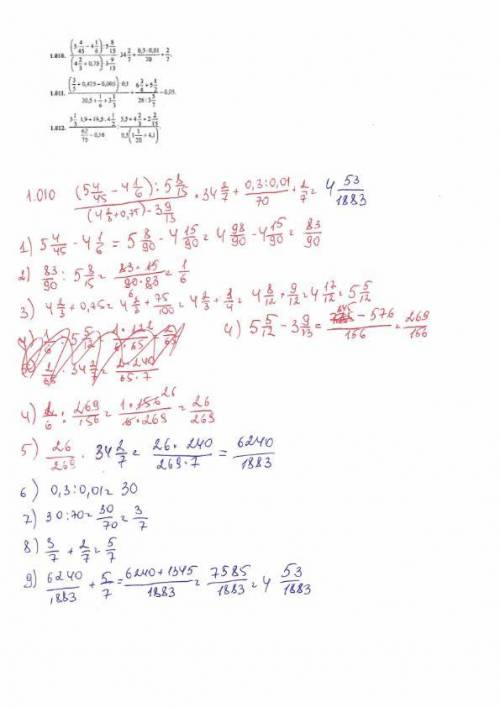 1.010. ((5 4/45 − 4 1/6) : 5 8/15) / ((4 2/3 + 0,75) · 3 9/13) · 34 2/7 + (0,3 : 0,01)/70 + 2/7.
1.011. ((3/5 + 0,425 − 0,005) : 0,1) / (30,5 + 1/6 + 3 1/3) + (6 3/4 + 5 1/2) / (26 : 3 5/7) − 0,05.
1.012.
1.010 ((5 4/45 − 4 1/6) : 5 8/15) / ((4 2/3 + 0,75) − 3 9/13) · 34 2/7 + (0,3 : 0,01)/70 + 2/7 = 4 53/1883
1) 5 4/45 − 4 1/6 = 5 8/90 − 4 15/90 = 4 98/90 − 4 15/90 = 83/90
2) 83/90 : 5 8/15 = (83 · 15)/(90 · 83) = 1/6
3) 4 2/3 + 0,75 = 4 2/3 + 75/100 = 4 2/3 + 3/4 = 4 8/12 + 9/12 = 4 17/12 = 5 5/12
4) 5 5/12 − 3 9/13 = − 576/156 = 269/156
4) 1/6 : 269/156 = (1 · 156 26)/(6 · 269) = 26/269
5) 26/269 · 34 2/7 = (26 · 240)/(269 · 7) = 6240/1883
6) 0,3 : 0,01 = 30
7) 30 : 70 = 30/70 = 3/7
8) 3/7 + 2/7 = 5/7
9) 6240/1883 + 5/7 = (6240 + 1345)/1883 = 7585/1883 = 4 53/1883